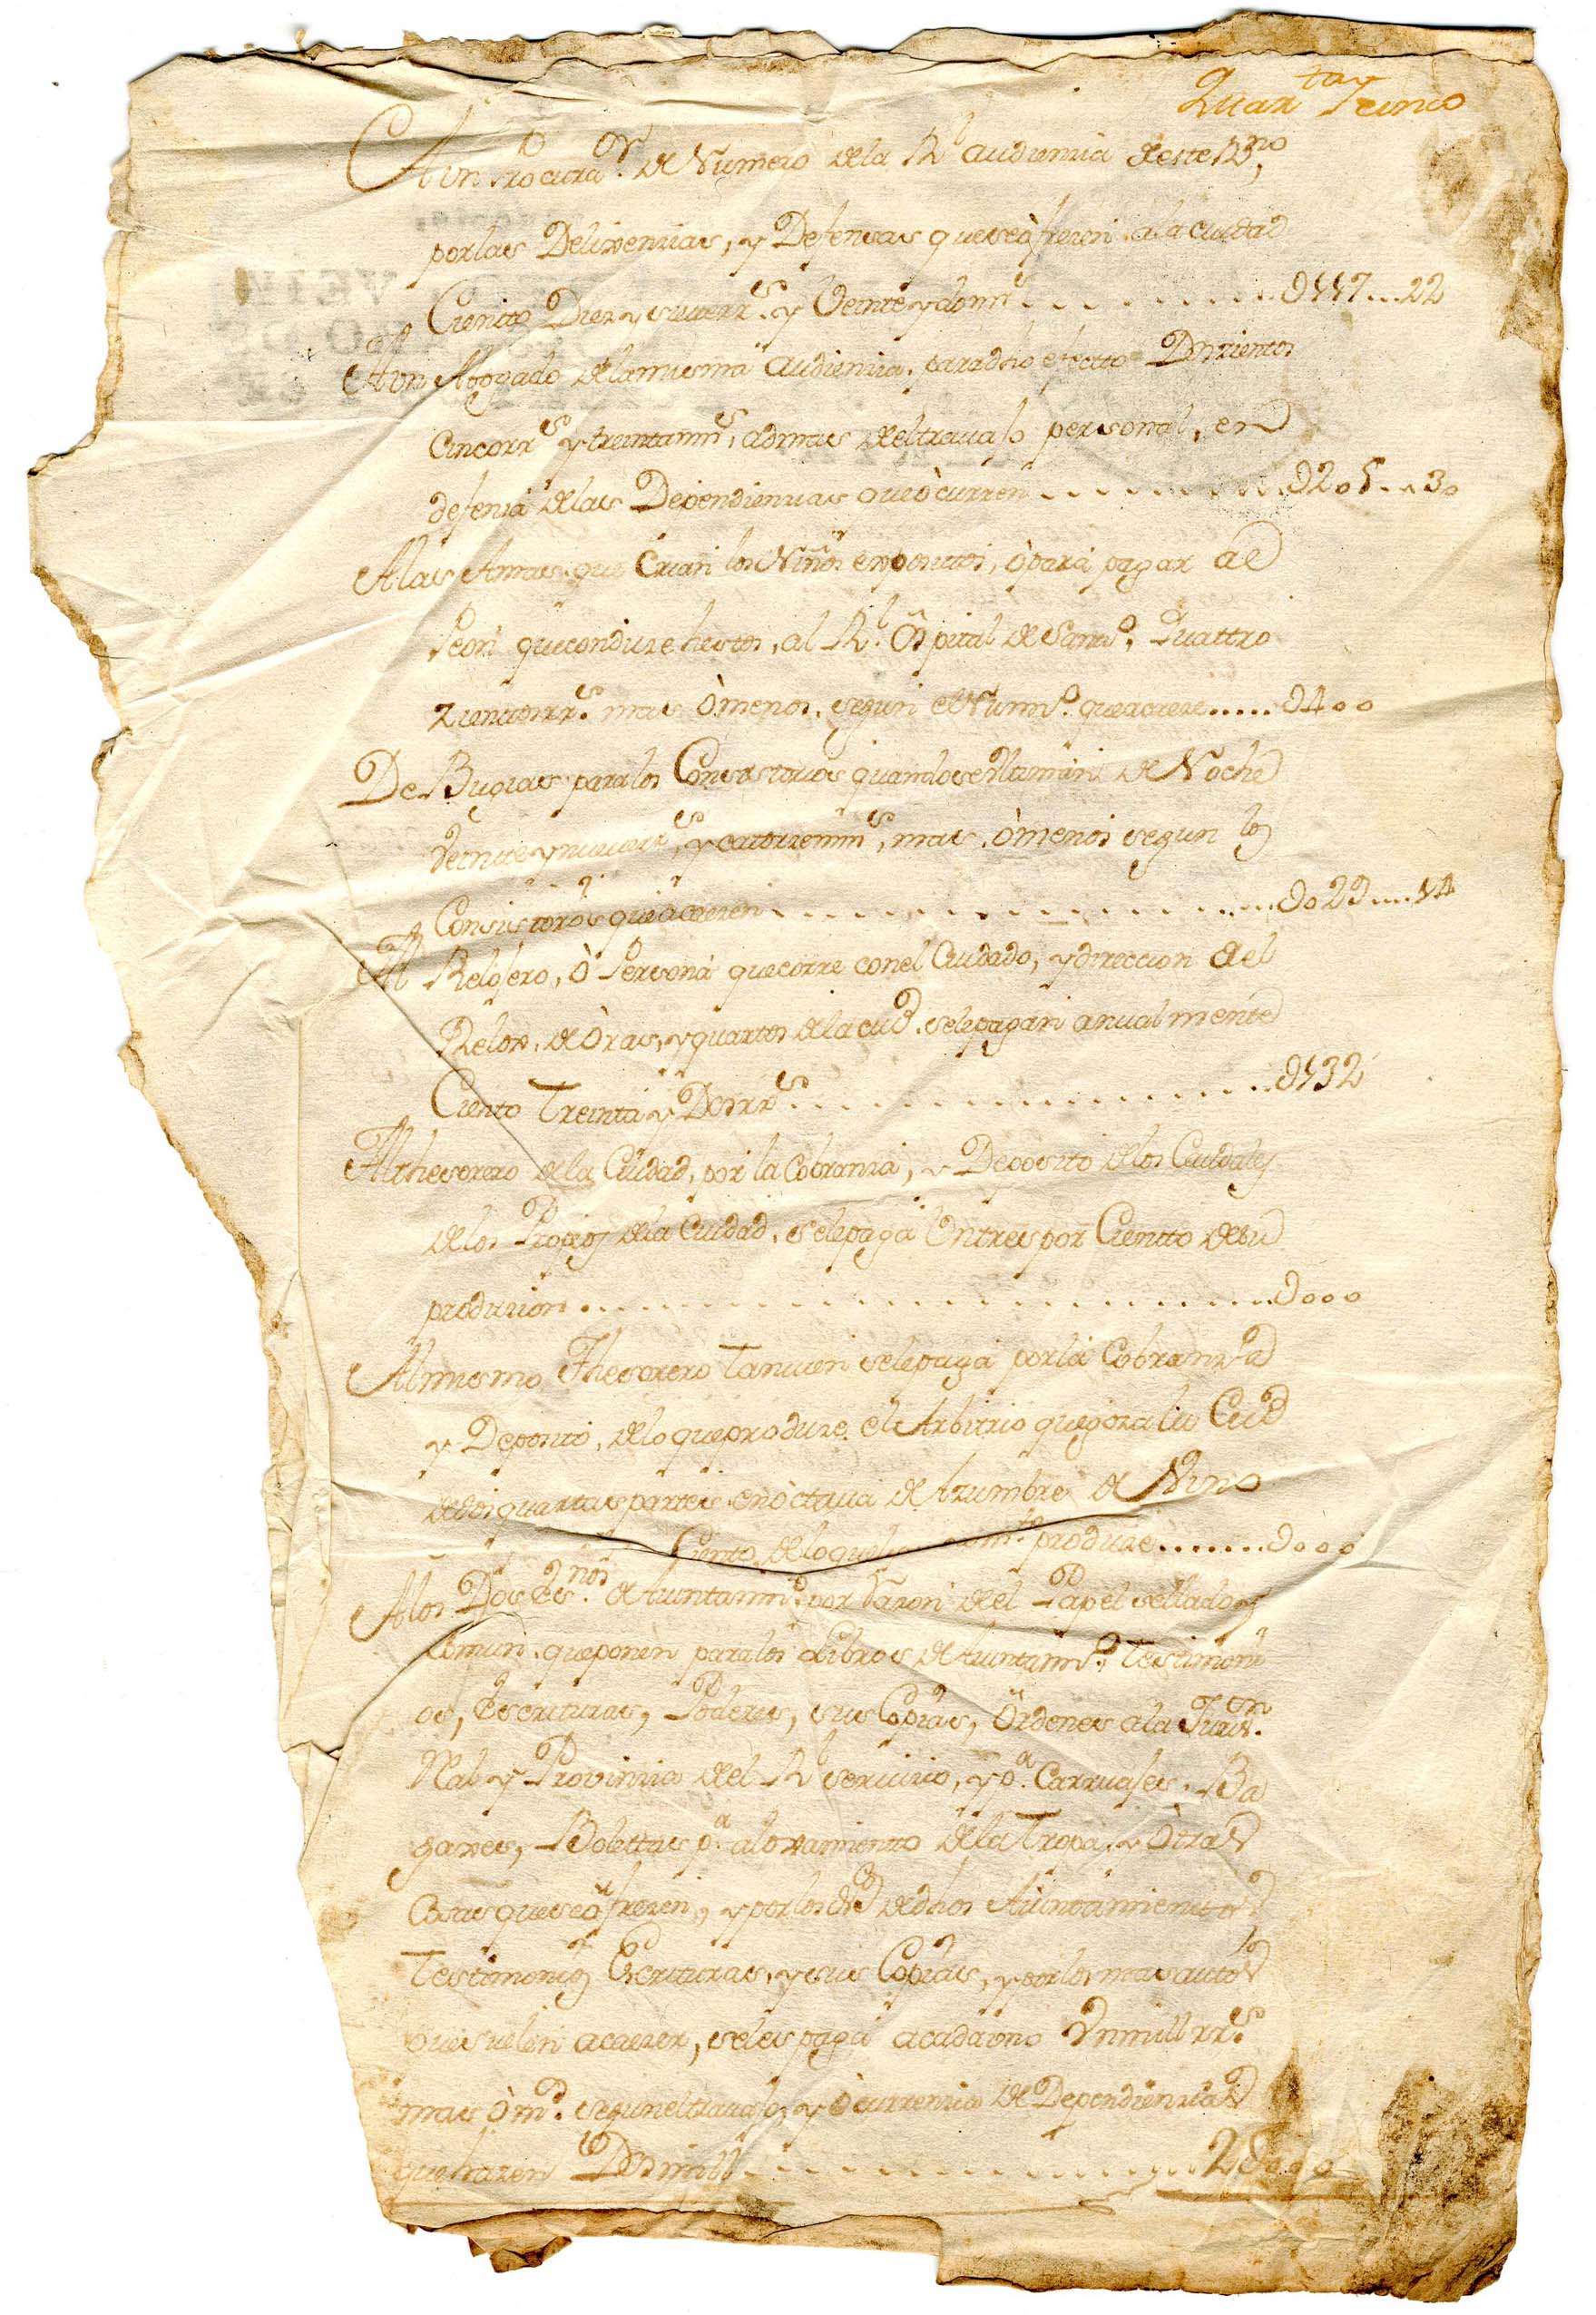 Quarᵗᵃʸ Cinco
A un Procuraᵒʳ. de Numero de la Rˡ audiencia de este Rⁿᵒ,
por las Delixencias, y Defensas que se ofrecen a la ciudad
Ciento Diez y siete rrˢ. y Veinte y dos mrˢ. . . . . . . . . D117...22
A un Abogado de la misma Audiencia, para dho efecto Doszientos
Cinco rrˢ y treinta mrˢ, ademas del trauajo personal, en
defensa de las Dependiencias que òcurren . . . . . . . . . D205...30
A las Amas que Crian los Niños expositos, ò para pagar al
Peon que conduze hestos, al Rˡ. Ospital de Santᵒ, Quattro
zientos rrˢ. mas òmenos, segun el Numrᵒ. que ocurre ..... D400
De Bugias para los Consistorios quando se llaman de Noche
Veinte y nueue rrˢ, y catorze mrˢ, mas, òmenos segun los
Consistorios que àcaecen . . . . . . . . . . . . D029....14
Al Relojero, ò Persona que corre con el Cuidado, y direccion del
Relox, de Òras, y quartos de la ciuᵈ. se le pagan anualmente
Ciento Treinta y Dos rrˢ. . . . . . . . . . . . . D132
Al thesorero de la Ciudad, por la Cobranza, y Deposito de los Caudales
de los Propios de la Ciudad, se le paga Un tres por Cientto de su
produccion . . . . . . . . . . . . . . . . D000
Al mismo Thesorero Tamuien se le paga por la Cobranza
y Deposito, de lo que produze el Arbitrio que goza la Ciuᵈ
de dos quartas partes en òctaua de Azumbre de Vino
Ciento, de lo que produze ....... D000
A los Dos Esⁿᵒˢ. de Aiuntammᵗᵒ. por Razon de el Papel sellado y
Comun, que ponen para los Libros de Aiuntammᵗᵒ, Testimoni
os, Escrituras, Poderes, sus Copias, Òrdenes a la Jurisᵒⁿ.
Rˡ y Provinzia del Rˡ seruicio, y pᵃ. Carruajes, Ba
gaxes, Bolettas pᵃ. aloxamiento de la Tropa, y Òtras
Cosas que se ofrezen, y por los dᵒˢ de dhos Aiuntamientos
Testimonios Escrituras, y sus Copias, y por los mas autos
que suelen acaezer, se les paga a cada uno Un mill rrˢ.
mas ò mˢ. segun el trauajo, y òcurrencia de Dependiencias
que hazen Dos mill . . . . . . . . . . . . 2D000